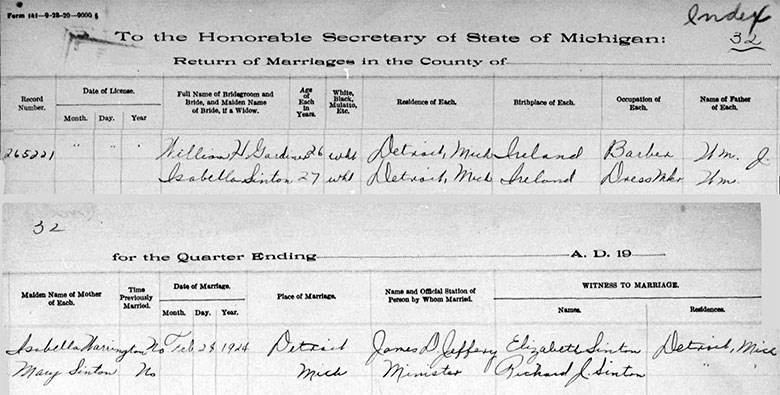 Form 141-9-28-20-9000 §
Index
32
To the Honorable Secretary of State of Michigan:
Return of Marriages in the County of
Record Number.
Date of License.
Month. Day. Year
Full Name of Bridegroom and Bride, and Maiden Name of Bride, if a Widow.
Age of Each in Years.
White, Black, Mulatto, Etc.
Residence of Each.
Birthplace of Each.
Occupation of Each.
Name of Father of Each.
265221 " " William H. Gardiner 26 wht Detroit, Mich Ireland Barber Wm. J.
Isabella Sinton 27 wht Detroit, Mich Ireland DressMkr Wm.
32
for the Quarter Ending A. D. 19
Maiden Name of Mother of Each.
Time Previously Married.
Date of Marriage.
Month. Day. Year.
Place of Marriage.
Name and Official Station of Person by Whom Married.
WITNESS TO MARRIAGE.
Names. Residences.
Isabella Warrington No Feb 28 1924 Detroit James D. Jeffery Elizabeth Sinton Detroit, Mich
Mary Sinton No Mich Minister Richard J. Sinton " "